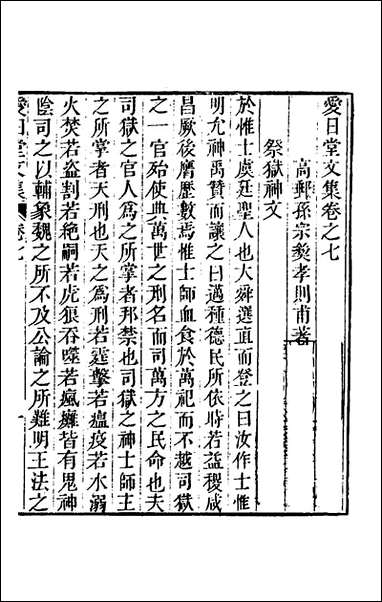 愛日堂文集卷之七
高郵孫宗彝孝則甫著
祭獄神文
於惟士虞廷聖人也大舜選直而登之曰汝作士惟
明允神禹贊而讓之曰邁種德民所依時若益稷咸
昌厥後曆歷數焉惟士師血食於萬祀而不越司獄
之一官始使典萬世之刑名而司萬方之民命也夫
司獄之官人為之所掌者邦禁也司獄之神士師主
之所掌者天刑也天之為刑若霆擊若瘟疫若水溺
火焚若盜割若絶嗣若虎狼吞噬若瘋癱皆有鬼神
陰司之以輔象魏之所不及公論之所難明王法之
愛日堂文集 卷七 一